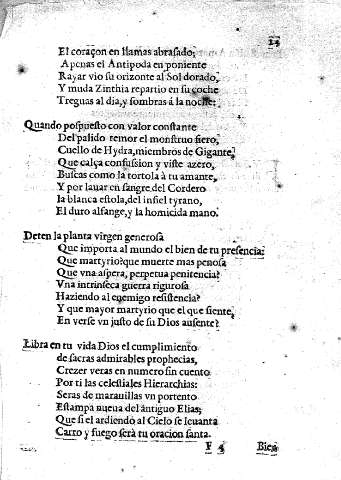 24
El coraçon en llamas abrasado;
Apenas el Antipoda en poniente
Rayar vio su orizonte al Sol dorado,
Y muda Zinthia repartio en su coche
Treguas al dia, y sombras á la noche:
Quando pospuesto con valor constante
Del palido temor el monstruo fiero,
Cuello de Hydra, miembros de Gigante,
Que calça confussion y viste azero,
Buscas como la tortola à tu amante,
Y por lauar en sangre del Cordero
la blanca estola, del infiel tyrano,
El duro alfange, y la homicida mano.
Deten la planta virgen generosa
Que importa al mundo el bien de tu presencia:
Que martyrio? que muerte mas penosa
Que vna aspera, perpetua penitencia?
Vna intrinseca guerra rigurosa
Haziendo al enemigo resistencia?
Y que mayor martyrio que el que siente,
En verse vn justo de su Dios ausente?
Libra en tu vida Dios el cumplimiento
de sacras admirables prophecias,
Crezer veras en numero sin cuento
Por ti las celestiales Hierarchias:
Seras de marauillas vn portento
Estampa nueua del ántiguo Elias;
Que si el ardiendo al Cielo se leuanta
Carro y fuego serà tu oracion santa.
F 4 Bien